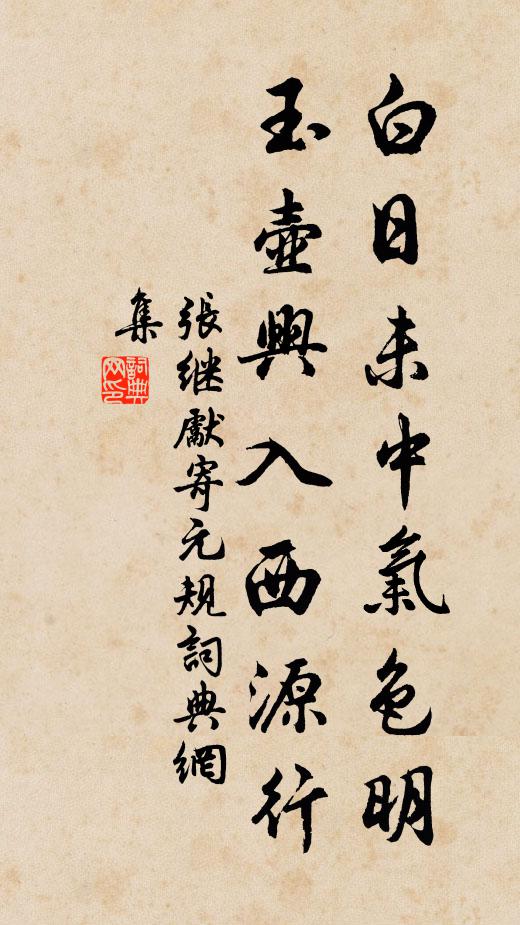 白日未中氣色明
玉壺興入西源行
張继獻寄元规詞典網
集
詞典
网印